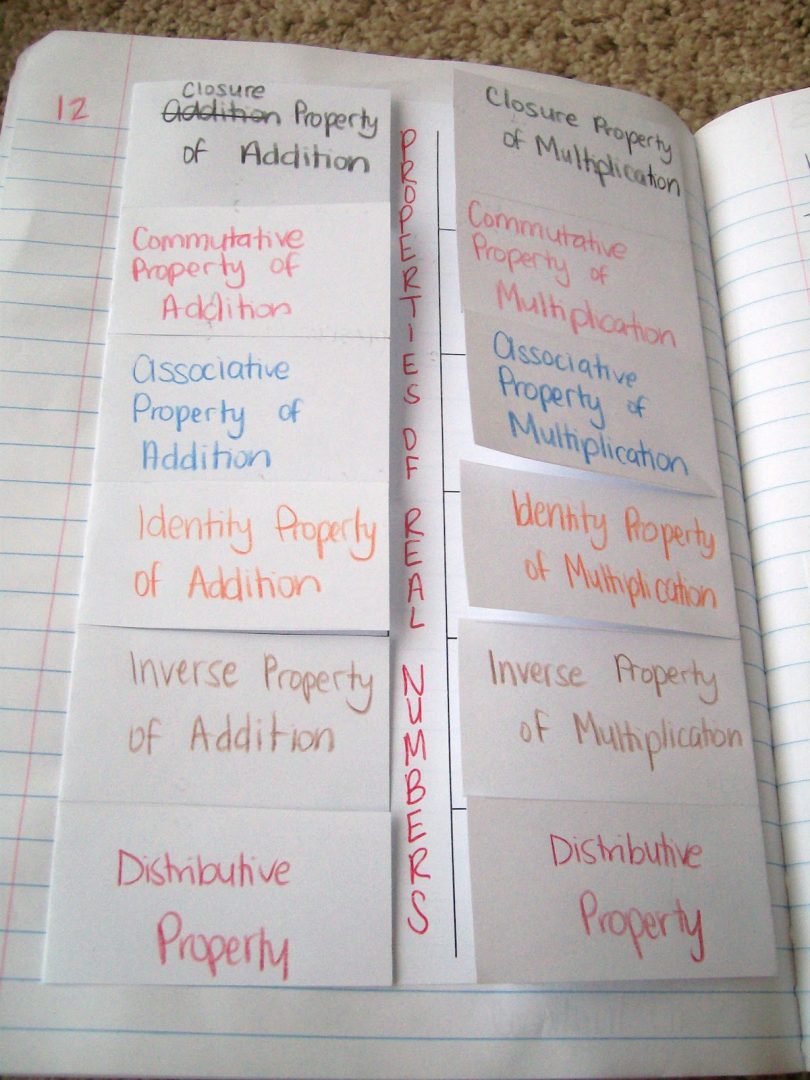 12
Closure
Addition Property
of Addition
Commutative
Property of
Addition
Associative
Property of
Addition
Identity Property
of Addition
Inverse Property
of Addition
Distributive
Property
PROPERTIES OF REAL NUMBERS
Closure Property
of Multiplication
Commutative
Property of
Multiplication
Associative
Property of
Multiplication
Identity Property
of Multiplication
Inverse Property
of Multiplication
Distributive
Property